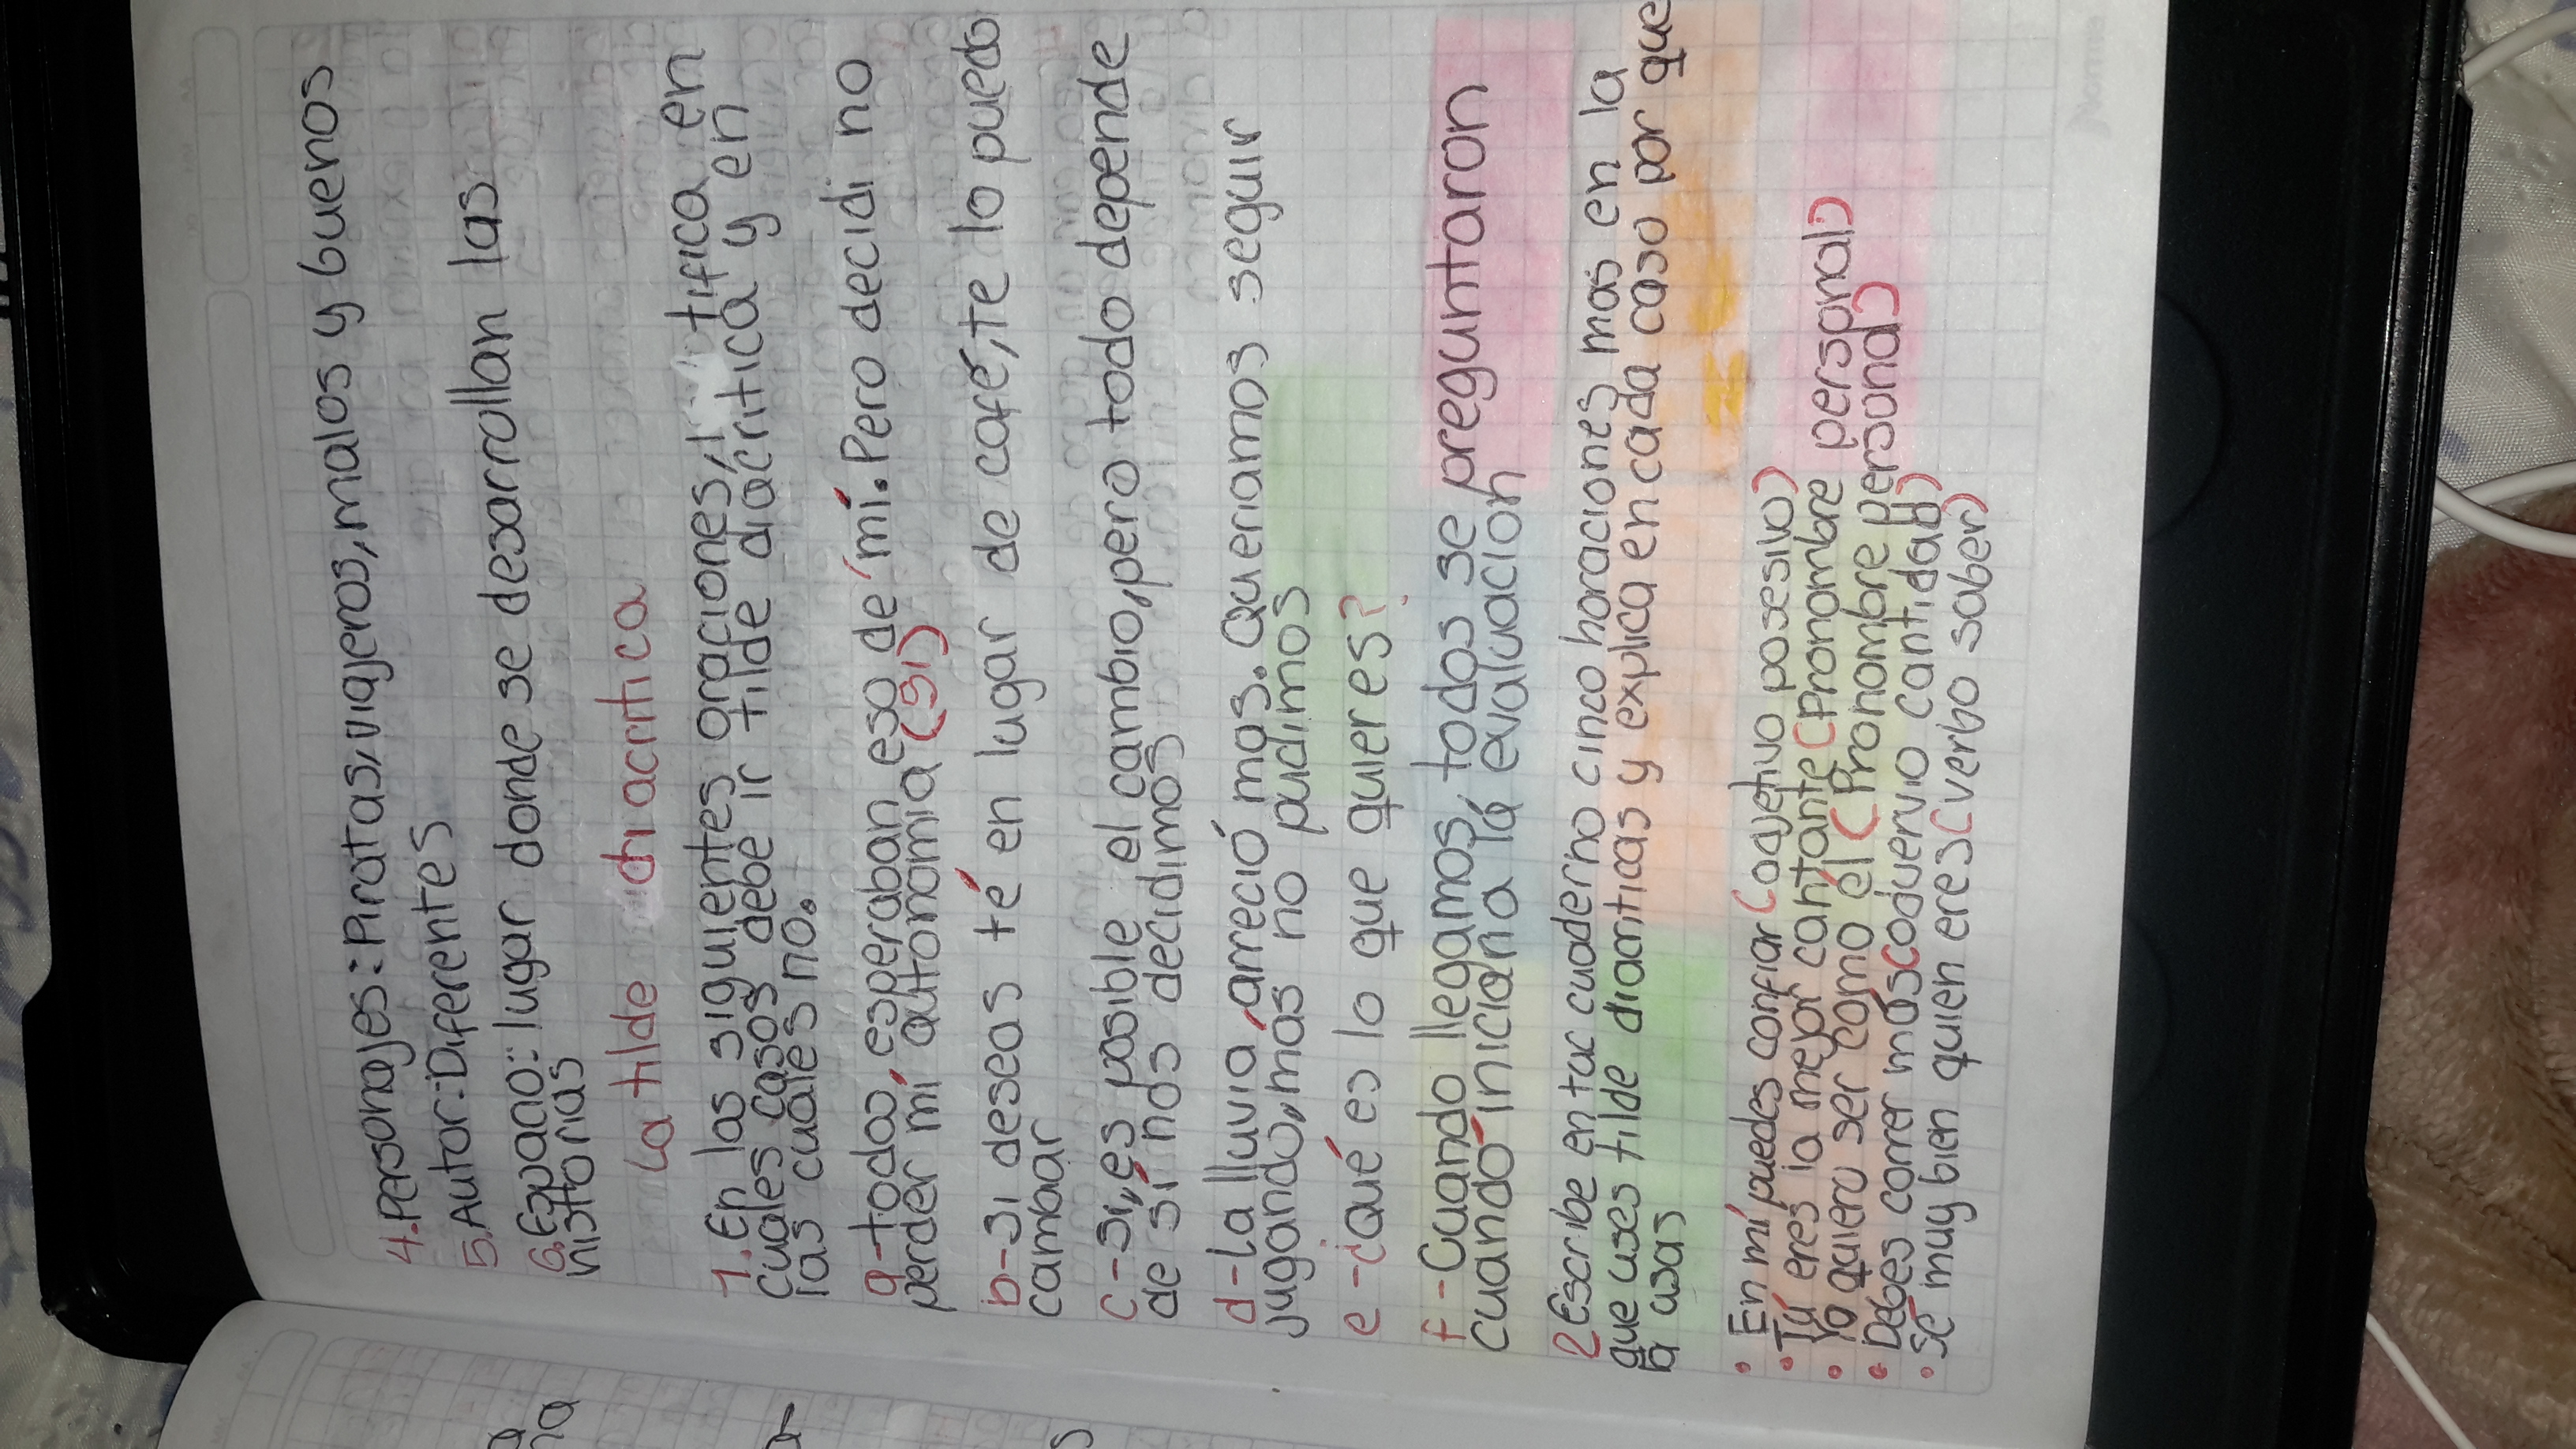 4. Personajes: Piratas, viajeros, malos y buenos
5. Autor: Diferentes
6. Espacio: lugar donde se desarrollan las
historias
La tilde diacritica
1. En las siguientes oraciones, tifica en
cuales casos debe ir tilde diácritica y en
las cuales no.
a- todos, esperaban eso de mí. Pero decidi no
perder mí autonomia (si)
b- si deseas té en lugar de café, te lo puedo
cambiar
c- si, es posible el cambio, pero todo depende
de sí nos decidimos
d- La lluvia, arreció mas. Queriamos seguir
jugando, más no pudimos
e- ¿qué es lo que quieres?
f- Cuando llegamos, todos se preguntaron
cuándo iniciaria la evaluación
2 Escribe en tu cuaderno cinco horaciones mas en la
que uses tilde diacriticas y explica en cada caso por que
la usas
• En mí puedes confiar (adjetivo posesivo)
• Tú eres la mejor cantante (Pronombre personal)
• Yo quiero ser como él (Pronombre personal)
• Debes correr más (advervio cantidad)
• sé muy bien quien eres (verbo saber)